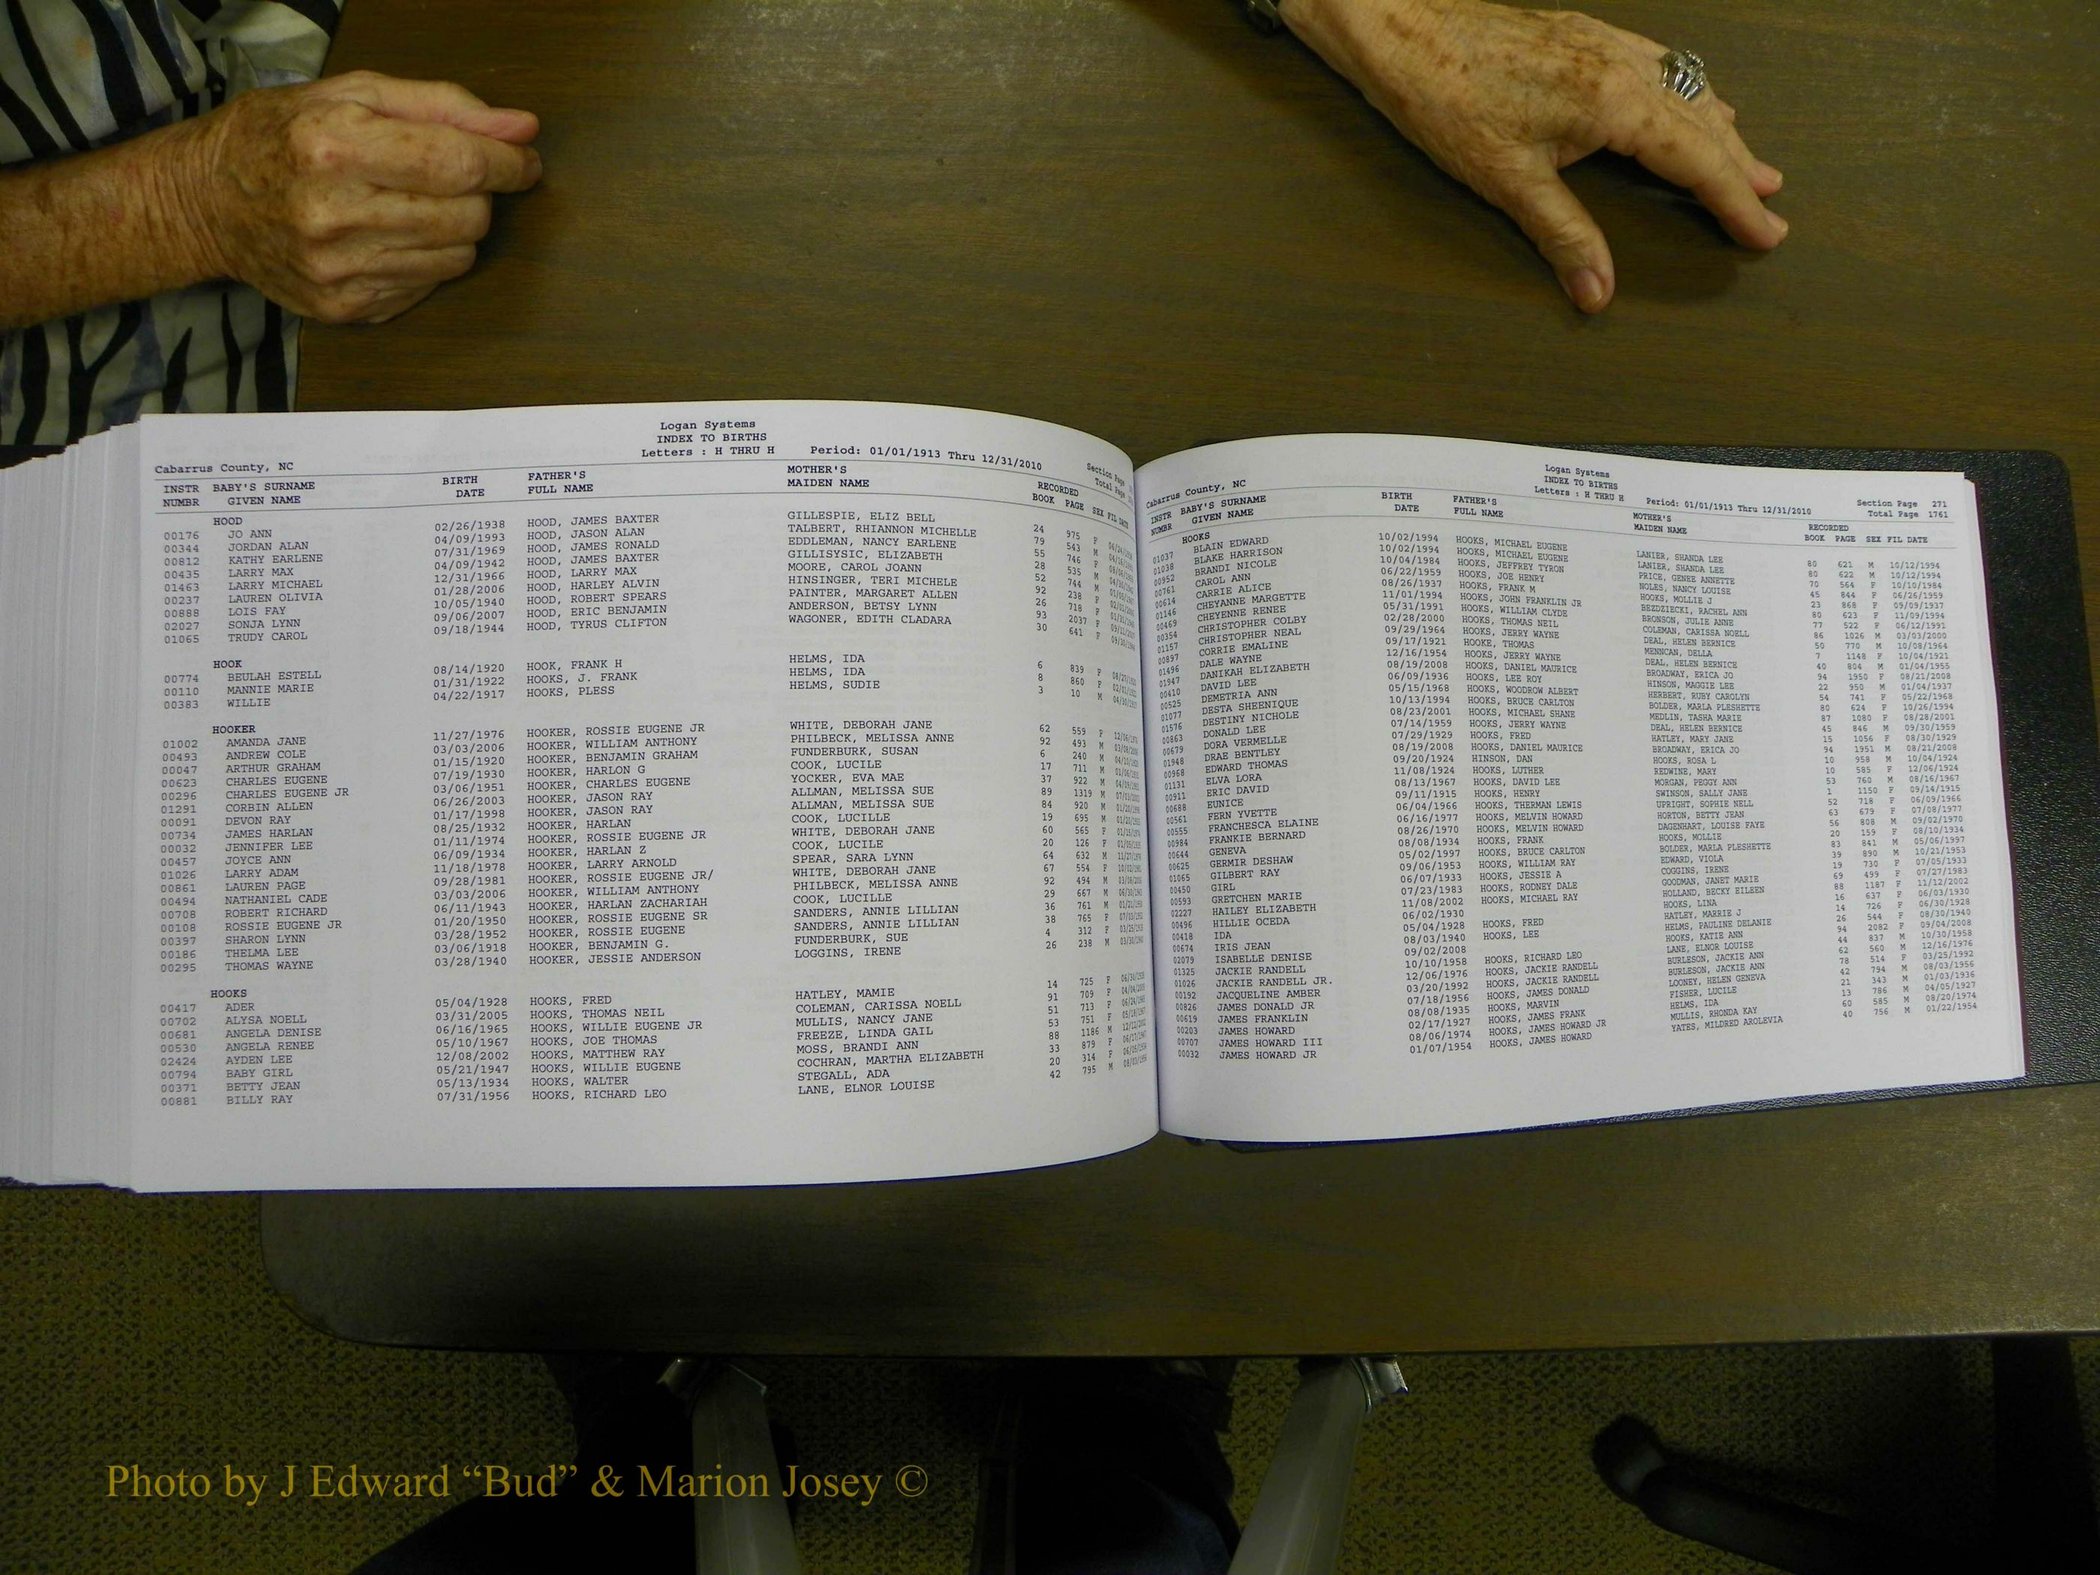 Logan Systems
INDEX TO BIRTHS
Cabarrus County, NC Letters : H THRU H Period: 01/01/1913 Thru 12/31/2010 Section Page
Total Page
INSTR BABY'S SURNAME BIRTH FATHER'S MOTHER'S RECORDED
NUMBR GIVEN NAME DATE FULL NAME MAIDEN NAME BOOK PAGE SEX FIL DATE
HOOD
00176 JO ANN 02/26/1938 HOOD, JAMES BAXTER GILLESPIE, ELIZ BELL 24 975 F
00344 JORDAN ALAN 04/09/1993 HOOD, JASON ALAN TALBERT, RHIANNON MICHELLE 79 543 M
00812 KATHY EARLENE 07/31/1969 HOOD, JAMES RONALD EDDLEMAN, NANCY EARLENE 55 746 F
00435 LARRY MAX 04/09/1942 HOOD, JAMES BAXTER GILLISYSIC, ELIZABETH 28 535 M
01463 LARRY MICHAEL 12/31/1966 HOOD, LARRY MAX MOORE, CAROL JOANN 52 744 M
00237 LAUREN OLIVIA 01/28/2006 HOOD, HARLEY ALVIN HINSINGER, TERI MICHELE 92 238 F
00888 LOIS FAY 10/05/1940 HOOD, ROBERT SPEARS PAINTER, MARGARET ALLEN 26 718 F
02027 SONJA LYNN 09/06/2007 HOOD, ERIC BENJAMIN ANDERSON, BETSY LYNN 93 2037 F
01065 TRUDY CAROL 09/18/1944 HOOD, TYRUS CLIFTON WAGONER, EDITH CLADARA 30 641 F
HOOK
00774 BEULAH ESTELL 08/14/1920 HOOK, FRANK H HELMS, IDA 6 839 F
00110 MANNIE MARIE 01/31/1922 HOOKS, J. FRANK HELMS, IDA 8 860 F
00383 WILLIE 04/22/1917 HOOKS, PLESS HELMS, SUDIE 3 10 M
HOOKER
01002 AMANDA JANE 11/27/1976 HOOKER, ROSSIE EUGENE JR WHITE, DEBORAH JANE 62 559 F
00493 ANDREW COLE 03/03/2006 HOOKER, WILLIAM ANTHONY PHILBECK, MELISSA ANNE 92 493 M
00047 ARTHUR GRAHAM 01/15/1920 HOOKER, BENJAMIN GRAHAM FUNDERBURK, SUSAN 6 240 M
00623 CHARLES EUGENE 07/19/1930 HOOKER, HARLON G COOK, LUCILE 17 711 M
00296 CHARLES EUGENE JR 03/06/1951 HOOKER, CHARLES EUGENE YOCKER, EVA MAE 37 922 M
01291 CORBIN ALLEN 06/26/2003 HOOKER, JASON RAY ALLMAN, MELISSA SUE 89 1319 M
00091 DEVON RAY 01/17/1998 HOOKER, JASON RAY ALLMAN, MELISSA SUE 84 920 M
00734 JAMES HARLAN 08/25/1932 HOOKER, HARLAN COOK, LUCILLE 19 695 M
00032 JENNIFER LEE 01/11/1974 HOOKER, ROSSIE EUGENE JR WHITE, DEBORAH JANE 60 565 F
00457 JOYCE ANN 06/09/1934 HOOKER, HARLAN Z COOK, LUCILE 20 126 F
01026 LARRY ADAM 11/18/1978 HOOKER, LARRY ARNOLD SPEAR, SARA LYNN 64 632 M
00861 LAUREN PAGE 09/28/1981 HOOKER, ROSSIE EUGENE JR/ WHITE, DEBORAH JANE 67 554 F
00494 NATHANIEL CADE 03/03/2006 HOOKER, WILLIAM ANTHONY PHILBECK, MELISSA ANNE 92 494 M
00708 ROBERT RICHARD 06/11/1943 HOOKER, HARLAN ZACHARIAH COOK, LUCILLE 29 667 M
00108 ROSSIE EUGENE JR 01/20/1950 HOOKER, ROSSIE EUGENE SR SANDERS, ANNIE LILLIAN 36 761 M
00397 SHARON LYNN 03/28/1952 HOOKER, ROSSIE EUGENE SANDERS, ANNIE LILLIAN 38 765 F
00186 THELMA LEE 03/06/1918 HOOKER, BENJAMIN G. FUNDERBURK, SUE 4 312 F
00295 THOMAS WAYNE 03/28/1940 HOOKER, JESSIE ANDERSON LOGGINS, IRENE 26 238 M
HOOKS
00417 ADER 05/04/1928 HOOKS, FRED HATLEY, MAMIE 14 725 F
00702 ALYSA NOELL 03/31/2005 HOOKS, THOMAS NEIL COLEMAN, CARISSA NOELL 91 709 F
00681 ANGELA DENISE 06/16/1965 HOOKS, WILLIE EUGENE JR MULLIS, NANCY JANE 51 713 F
00530 ANGELA RENEE 05/10/1967 HOOKS, JOE THOMAS FREEZE, LINDA GAIL 53 751 F
02424 AYDEN LEE 12/08/2002 HOOKS, MATTHEW RAY MOSS, BRANDI ANN 88 1186 M
00794 BABY GIRL 05/21/1947 HOOKS, WILLIE EUGENE COCHRAN, MARTHA ELIZABETH 33 879 F
00371 BETTY JEAN 05/13/1934 HOOKS, WALTER STEGALL, ADA 20 314 F
00881 BILLY RAY 07/31/1956 HOOKS, RICHARD LEO LANE, ELNOR LOUISE 42 795 M
Logan Systems
INDEX TO BIRTHS
Cabarrus County, NC Letters : H THRU H Period: 01/01/1913 Thru 12/31/2010 Section Page 271
Total Page 1761
INSTR BABY'S SURNAME BIRTH FATHER'S MOTHER'S RECORDED
NUMBR GIVEN NAME DATE FULL NAME MAIDEN NAME BOOK PAGE SEX FIL DATE
HOOKS
01037 BLAIN EDWARD 10/02/1994 HOOKS, MICHAEL EUGENE LANIER, SHANDA LEE 80 621 M 10/12/1994
01038 BLAKE HARRISON 10/02/1994 HOOKS, MICHAEL EUGENE LANIER, SHANDA LEE 80 622 M 10/12/1994
00952 BRANDI NICOLE 10/04/1984 HOOKS, JEFFREY TYRON PRICE, GENEE ANNETTE 70 564 F 10/10/1984
00761 CAROL ANN 06/22/1959 HOOKS, JOE HENRY NOLES, NANCY LOUISE 45 844 F 06/26/1959
00614 CARRIE ALICE 08/26/1937 HOOKS, FRANK M HOOKS, MOLLIE J 23 868 F 09/09/1937
01146 CHEYANNE MARGETTE 11/01/1994 HOOKS, JOHN FRANKLIN JR BEZDZIECKI, RACHEL ANN 80 623 F 11/09/1994
00469 CHEYENNE RENEE 05/31/1991 HOOKS, WILLIAM CLYDE BRONSON, JULIE ANNE 77 522 F 06/12/1991
00354 CHRISTOPHER COLBY 02/28/2000 HOOKS, THOMAS NEIL COLEMAN, CARISSA NOELL 86 1026 M 03/03/2000
01157 CHRISTOPHER NEAL 09/29/1964 HOOKS, JERRY WAYNE DEAL, HELEN BERNICE 50 770 M 10/08/1964
00897 CORRIE EMALINE 09/17/1921 HOOKE, THOMAS MENNCAN, DELLA 7 1148 F 10/04/1921
01496 DALE WAYNE 12/16/1954 HOOKS, JERRY WAYNE DEAL, HELEN BERNICE 40 804 M 01/04/1955
01947 DANIKAH ELIZABETH 08/19/2008 HOOKS, DANIEL MAURICE BROADWAY, ERICA JO 94 1950 F 08/21/2008
00410 DAVID LEE 06/09/1936 HOOKS, LEE ROY HINSON, MAGGIE LEE 22 950 M 01/04/1937
00525 DEMETRIA ANN 05/15/1968 HOOKS, WOODROW ALBERT HERBERT, RUBY CAROLYN 54 741 F 05/22/1968
01077 DESTA SHEENIQUE 10/13/1994 HOOKS, BRUCE CARLTON BOLDER, MARLA PLESHETTE 80 624 F 10/26/1994
01576 DESTINY NICHOLE 08/23/2001 HOOKS, MICHAEL SHANE MEDLIN, TASHA MARIE 87 1080 F 08/28/2001
00863 DONALD LEE 07/14/1959 HOOKS, JERRY WAYNE DEAL, HELEN BERNICE 45 846 M 09/30/1959
00679 DORA VERMELLE 07/29/1929 HOOKS, FRED HATLEY, MARY JANE 15 1056 F 08/30/1929
01948 DRAE BENTLEY 08/19/2008 HOOKS, DANIEL MAURICE BROADWAY, ERICA JO 94 1951 M 08/21/2008
00968 EDWARD THOMAS 09/20/1924 HINSON, DAN HOOKS, ROSA L 10 958 M 10/04/1924
01131 ELVA LORA 11/08/1924 HOOKS, LUTHER REDWINE, MARY 10 585 F 12/06/1924
00911 ERIC DAVID 08/13/1967 HOOKS, DAVID LEE MORGAN, PEGGY ANN 53 760 M 08/16/1967
00688 EUNICE 09/11/1915 HOOKS, HENRY SWINSON, SALLY JANE 1 1150 F 09/14/1915
00561 FERN YVETTE 06/04/1966 HOOKS, THERMAN LEWIS UPRIGHT, SOPHIE NELL 52 718 F 06/09/1966
00555 FRANCHESCA ELAINE 06/16/1977 HOOKS, MELVIN HOWARD HORTON, BETTY JEAN 63 679 F 07/08/1977
00984 FRANKIE BERNARD 08/26/1970 HOOKS, MELVIN HOWARD DAGENHART, LOUISE FAYE 56 808 M 09/02/1970
00644 GENEVA 08/08/1934 HOOKS, FRANK HOOKS, MOLLIE 20 159 F 08/10/1934
00625 GERMIR DESHAW 05/02/1997 HOOKS, BRUCE CARLTON BOLDER, MARLA PLESHETTE 83 841 M 05/06/1997
01065 GILBERT RAY 09/06/1953 HOOKS, WILLIAM RAY EDWARD, VIOLA 39 890 M 10/21/1953
00450 GIRL 06/07/1933 HOOKS, JESSIE A COGGINS, IRENE 19 730 F 07/05/1933
00593 GRETCHEN MARIE 07/23/1983 HOOKS, RODNEY DALE GOODMAN, JANET MARIE 69 499 F 07/27/1983
02227 HAILEY ELIZABETH 11/08/2002 HOOKS, MICHAEL RAY HOLLAND, BECKY EILEEN 88 1187 F 11/12/2002
00496 HILLIE OCEDA 06/02/1930 HOOKS, LINA 16 637 F 06/03/1930
00418 IDA 05/04/1928 HOOKS, FRED HATLEY, MARRIE J 14 726 F 06/30/1928
00674 IRIS JEAN 08/03/1940 HOOKS, LEE HELMS, PAULINE DELANIE 26 544 F 08/30/1940
02079 ISABELLE DENISE 09/02/2008 HOOKS, KATIE ANN 94 2082 F 09/04/2008
01325 JACKIE RANDELL 10/10/1958 HOOKS, RICHARD LEO LANE, ELNOR LOUISE 44 837 M 10/30/1958
01026 JACKIE RANDELL JR. 12/06/1976 HOOKS, JACKIE RANDELL BURLESON, JACKIE ANN 62 560 M 12/16/1976
00192 JACQUELINE AMBER 03/20/1992 HOOKS, JACKIE RANDELL BURLESON, JACKIE ANN 78 514 F 03/25/1992
00826 JAMES DONALD JR 07/18/1956 HOOKS, JAMES DONALD LOONEY, HELEN GENEVA 42 794 M 08/03/1956
00619 JAMES FRANKLIN 08/08/1935 HOOKS, MARVIN FISHER, LUCILE 21 343 M 01/03/1936
00203 JAMES HOWARD 02/17/1927 HOOKS, JAMES FRANK HELMS, IDA 13 786 M 04/05/1927
00707 JAMES HOWARD III 08/06/1974 HOOKS, JAMES HOWARD JR MULLIS, RHONDA KAY 60 585 M 08/20/1974
00032 JAMES HOWARD JR 01/07/1954 HOOKS, JAMES HOWARD YATES, MILDRED AROLEVIA 40 756 M 01/22/1954
Photo by J Edward “Bud” & Marion Josey ©